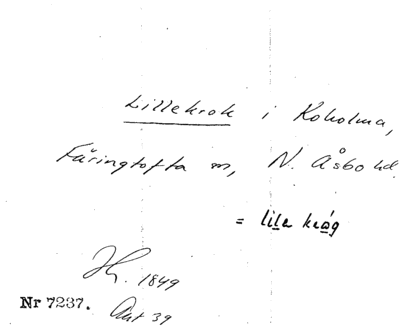 Lillekrok i Koholma,
Färingtofta sn, N. Åsbo hd.
= lile kråg
Hr. 1849
Nr 7237.
Akt 39